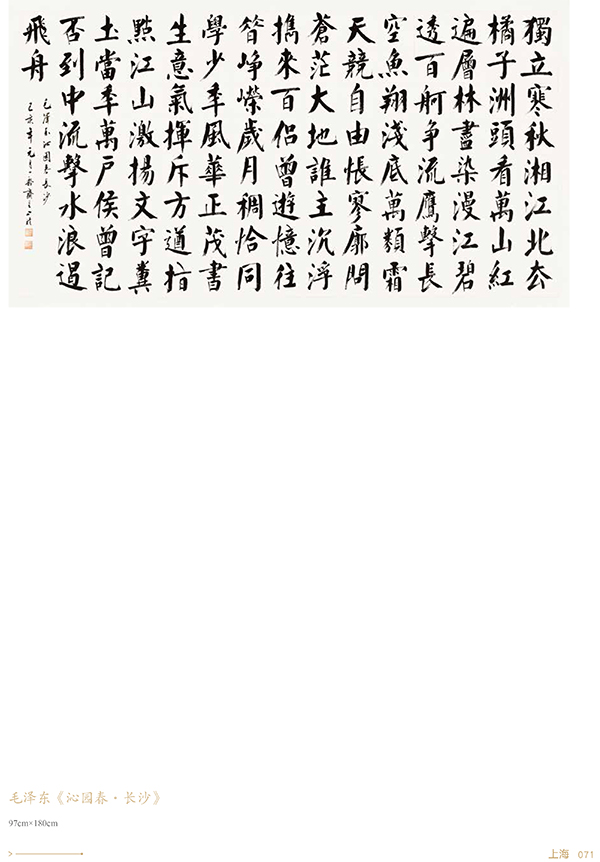 獨立寒秋湘江北去
橘子洲頭看萬山紅
遍層林盡染漫江碧
透百舸争流鷹擊長
空魚翔淺底萬類霜
天競自由悵寥廓問
蒼茫大地誰主沉浮
擕來百侣曾遊憶往
昔崢嶸歲月稠恰同
學少年風華正茂書
生意氣揮斥方遒指
點江山激揚文字糞
土當年萬户侯曾記
否到中流擊水浪遏
飛舟
毛澤東沁園春長沙
己亥年元月
毛泽东《沁园春·长沙》
97cm×180cm
上海 071